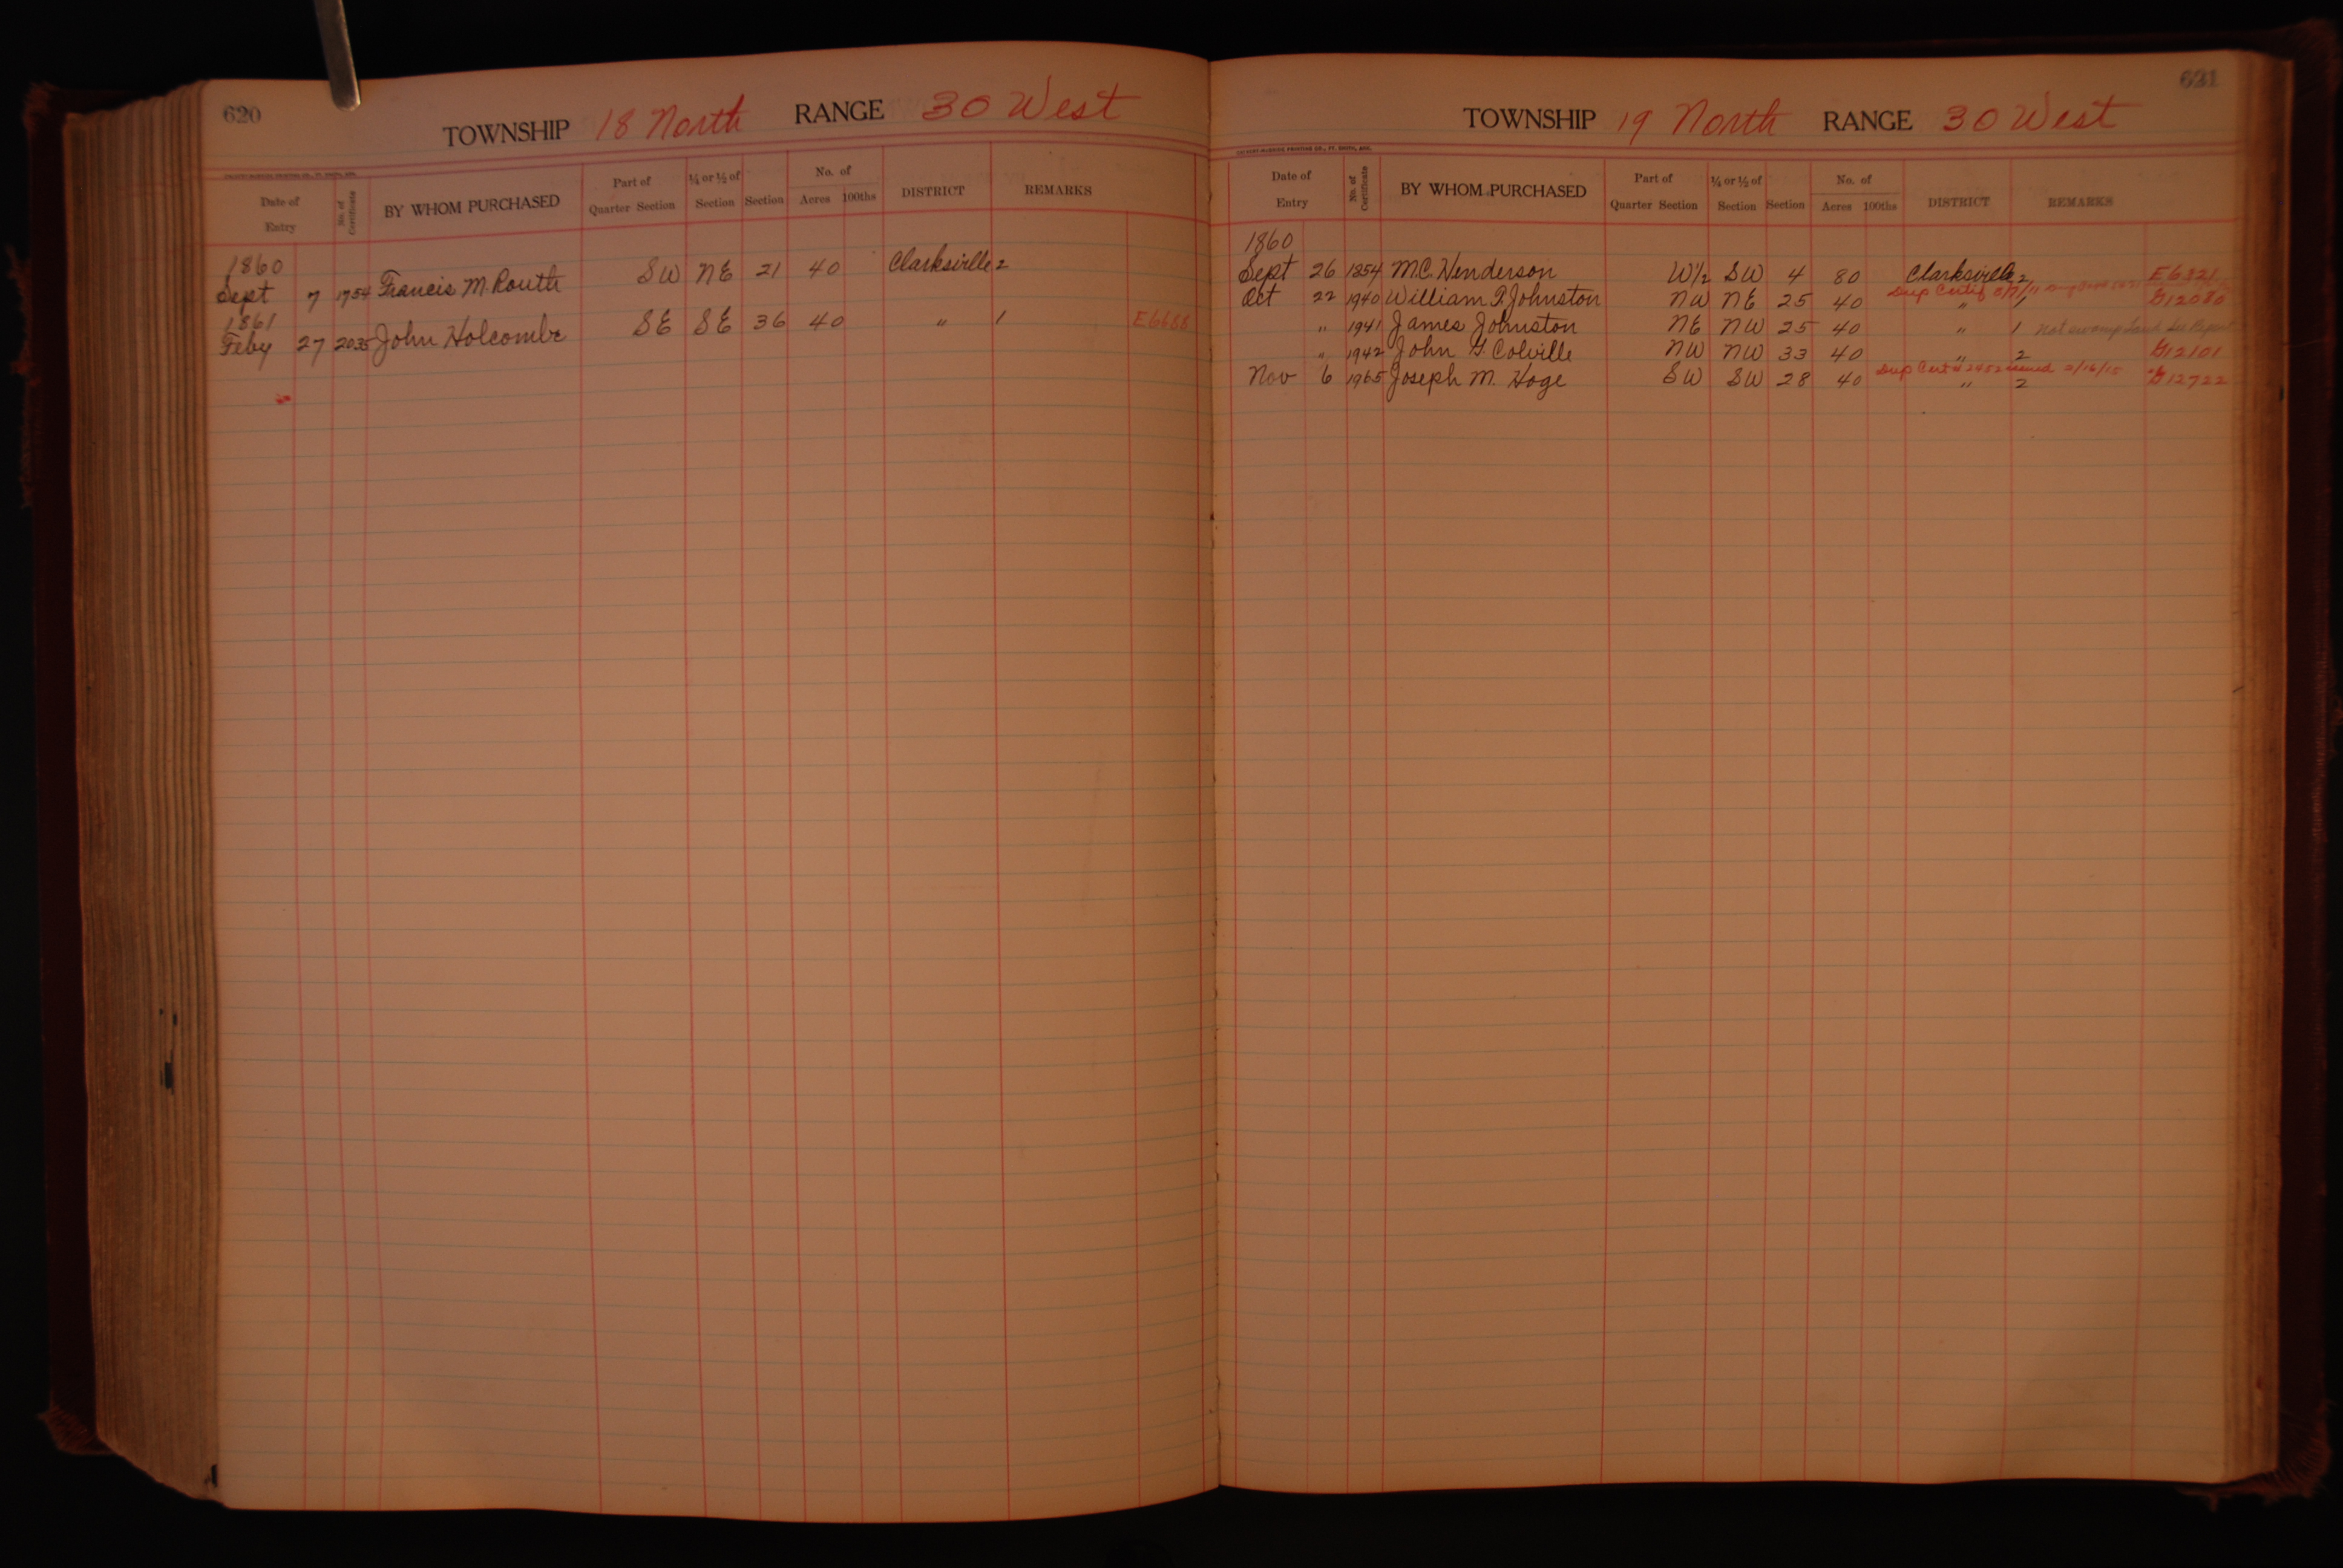 620
TOWNSHIP 18 North RANGE 30 West
Date of Entry No. of Certificate BY WHOM PURCHASED Part of Quarter Section ¼ or ½ of Section Section No. of Acres 100ths DISTRICT REMARKS
1860
Sept 7 1754 Francis M. Routh SW NE 21 40 Clarksville 2
1861
Feby 27 2035 John Holcombe SE SE 36 40 " 1 E6688
621
TOWNSHIP 19 North RANGE 30 West
Date of Entry No. of Certificate BY WHOM PURCHASED Part of Quarter Section ¼ or ½ of Section Section No. of Acres 100ths DISTRICT REMARKS
1860
Sept 26 1854 M.C. Henderson W½ SW 4 80 Clarksville 2 E6821
Dup Certif
Oct 22 1940 William P. Johnston NW NE 25 40 " 1 G12080
" 1941 James Johnston NE NW 25 40 " 1 Not swamp Land See Report
" 1942 John G. Colville NW NW 33 40 " 2 G12101
Dup Cert # 2452 issued 2/16/15
Nov 6 1965 Joseph M. Hoge SW SW 28 40 " 2 G12722